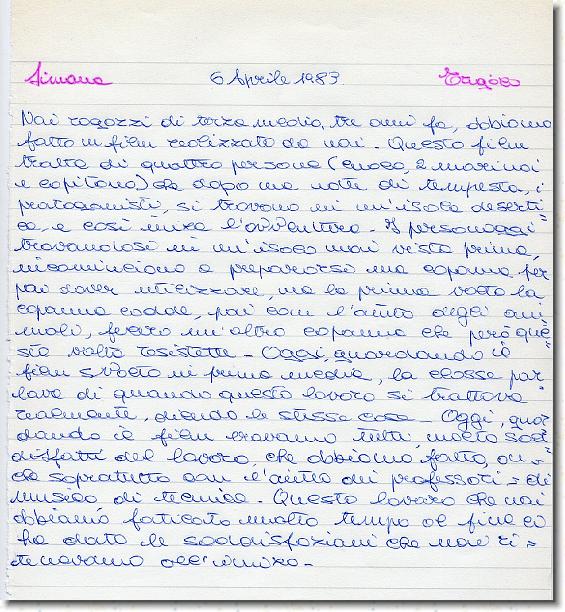 Simona 6 Aprile 1983
Noi ragazzi di terza media, tre anni fa, abbiamo
fatto un film realizzato da noi. Questo film
tratta di quattro persone (cuoco, 2 marinai
e capitano) che dopo una notte di tempesta, i
protagonisti, si trovano in un'isola deserti=
ca, e così inizia l'avventura. I personaggi
trovandosi in un'isola mai vista prima,
incominciano a prepararsi una capanna per
poi dover utilizzare, ma la prima volta la
capanna cadde, poi con l'aiuto degli ani
mali, fecero un'altra capanna che però que=
sta volta resistette - Oggi, guardando il
film svolto in prima media, la classe par
lava di quando questo lavoro si trattava
realmente, dicendo le stesse cose - Oggi, guar
dando il film eravamo tutti, molto sod
disfatti del lavoro, che abbiamo fatto, an=
che sopratutto con l'aiuto dei professori = di
musica di tecnica. Questo lavoro che noi
abbiamo faticato molto tempo al fine ci
ha dato le soddisfazioni che non ri=
tenevamo all'inizio -